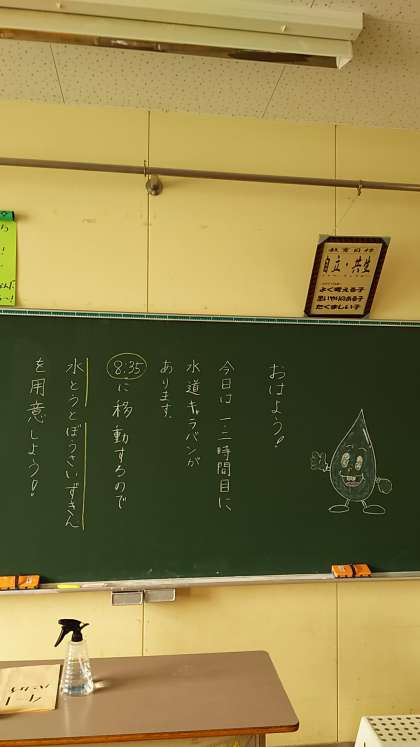 教育目標
自立・共生
よく考える子
思いやりのある子
たくましい子
おはよう!
今日は一・二時間目に
水道キャラバンが
あります。
8:35に移動するので
水とうとぼうさいずきん
を用意しよう!
4-1